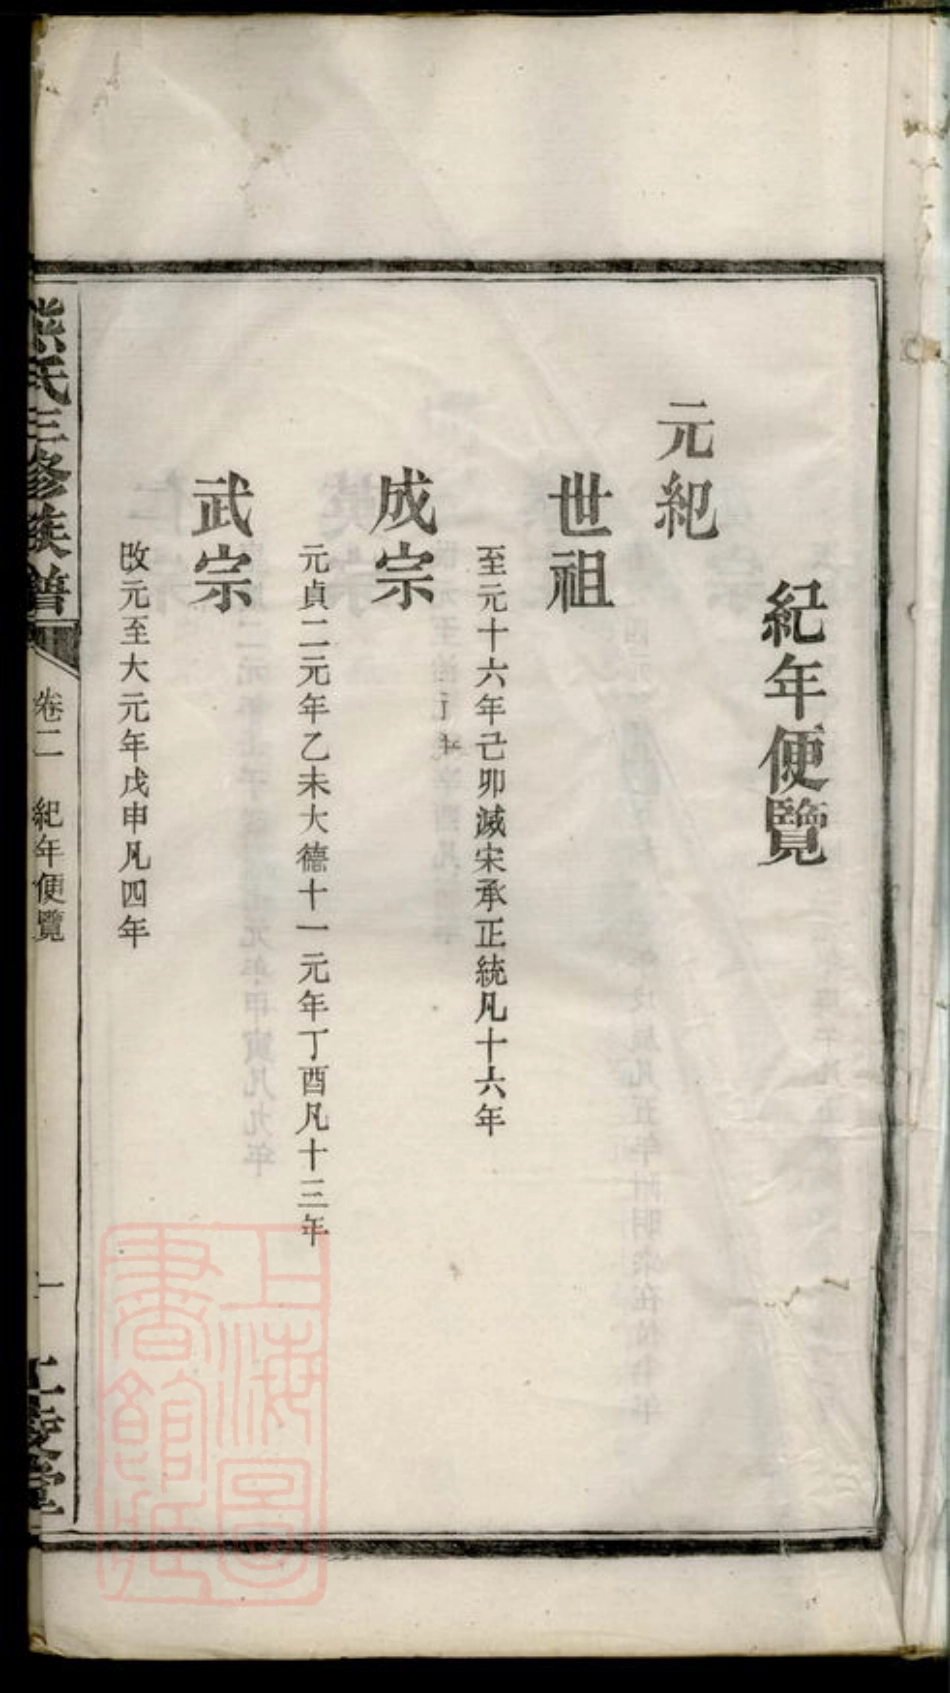 紀年便覽
元紀
世祖
至元十六年己卯滅宋承正統凡十六年
成宗
元貞二元年乙未大德十一元年丁酉凡十三年
武宗
改元至大元年戊申凡四年
氏三修族譜
卷二 紀年便覽 一
上海圖
書館藏